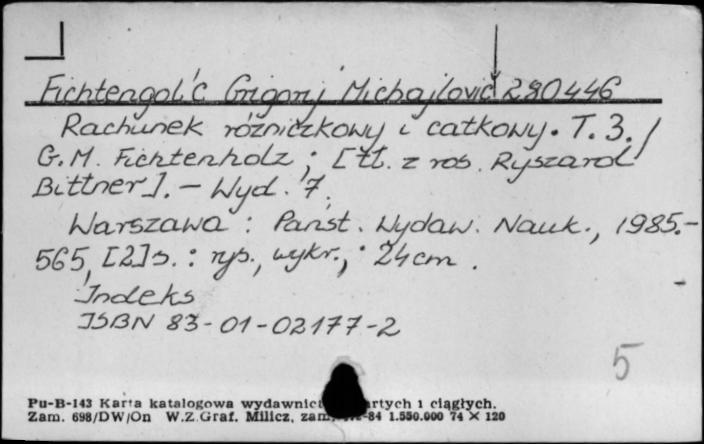 Fichtengol'c Grigorij Michajlovič 280446
Rachunek różniczkowy i całkowy. T. 3. /
G. M. Fichtenholz ; [tł. z ros. Ryszard
Bittner]. – Wyd. 7.
Warszawa : Państ. Wydaw. Nauk., 1985. –
565, [2] s. : rys., wykr., ; 24 cm.
Indeks
ISBN 83-01-02177-2
5
Pu-B-143 Karta katalogowa wydawnict artych i ciągłych.
Zam. 698/DW/On W.Z.Graf. Milicz, zam. -84 1.550.000 74 × 120